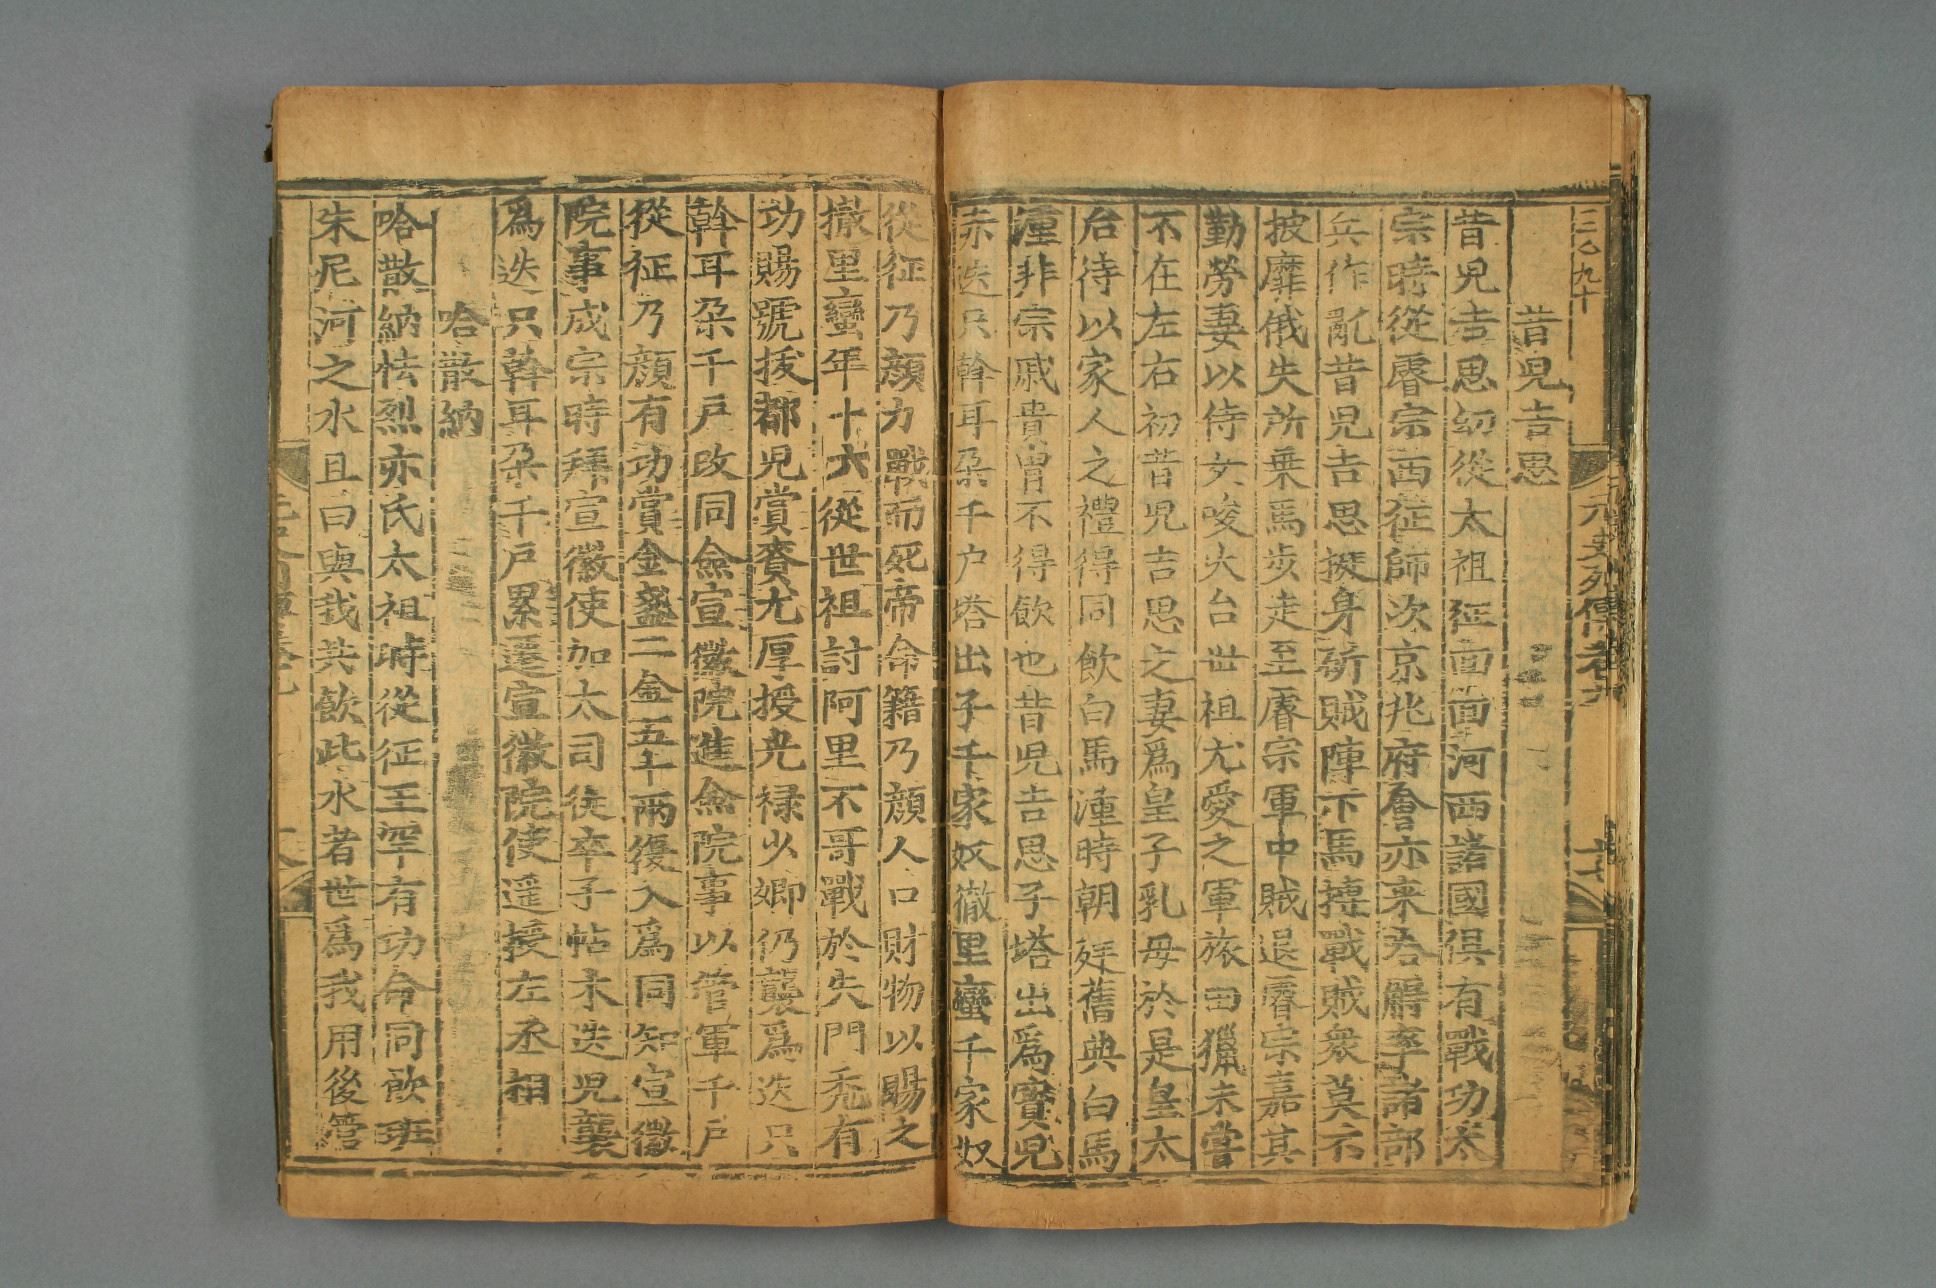 三百九十
元史列傳卷九
昔兒吉思
昔兒吉思幼從太祖征回回河西諸國俱有戰功太
宗時從睿宗西征師次京兆府會亦來哈䚟率諸部
兵作亂昔兒吉思挺身斫賊陣下馬搏戰賊衆莫不
披靡俄失所乗馬步走至睿宗軍中賊退睿宗嘉其
勤勞妻以侍女唆火台世祖尤愛之軍旅田獵未嘗
不在左右初昔兒吉思之妻爲皇子乳母於是皇太
后待以家人之禮得同飲白馬湩時朝廷舊典白馬
湩非宗戚貴胄不得飲也昔兒吉思子塔出爲寶兒
赤迭只斡耳朶千户塔出子千家奴徹里蠻千家奴
從征乃顔力戰而死帝命籍乃顔人口財物以賜之
撤里蠻年十六從世祖討阿里不哥戰於失門禿有
功賜號拔都兒賞賚尤厚授光禄少卿仍襲爲迭只
斡耳朶千戶改同僉宣徽院進僉院事以管軍千戶
從征乃顔有功賞金盞二金五十兩復入爲同知宣徽
院事成宗時拜宣徽使加大司徒卒子帖木迭兒襲
爲迭只斡耳朶千戶累遷宣徽院使遥授左丞相
哈散納
哈散納怯烈亦氏太祖時從征王罕有功命同飲班
朱尼河之水且曰與我共飲此水者世爲我用後管